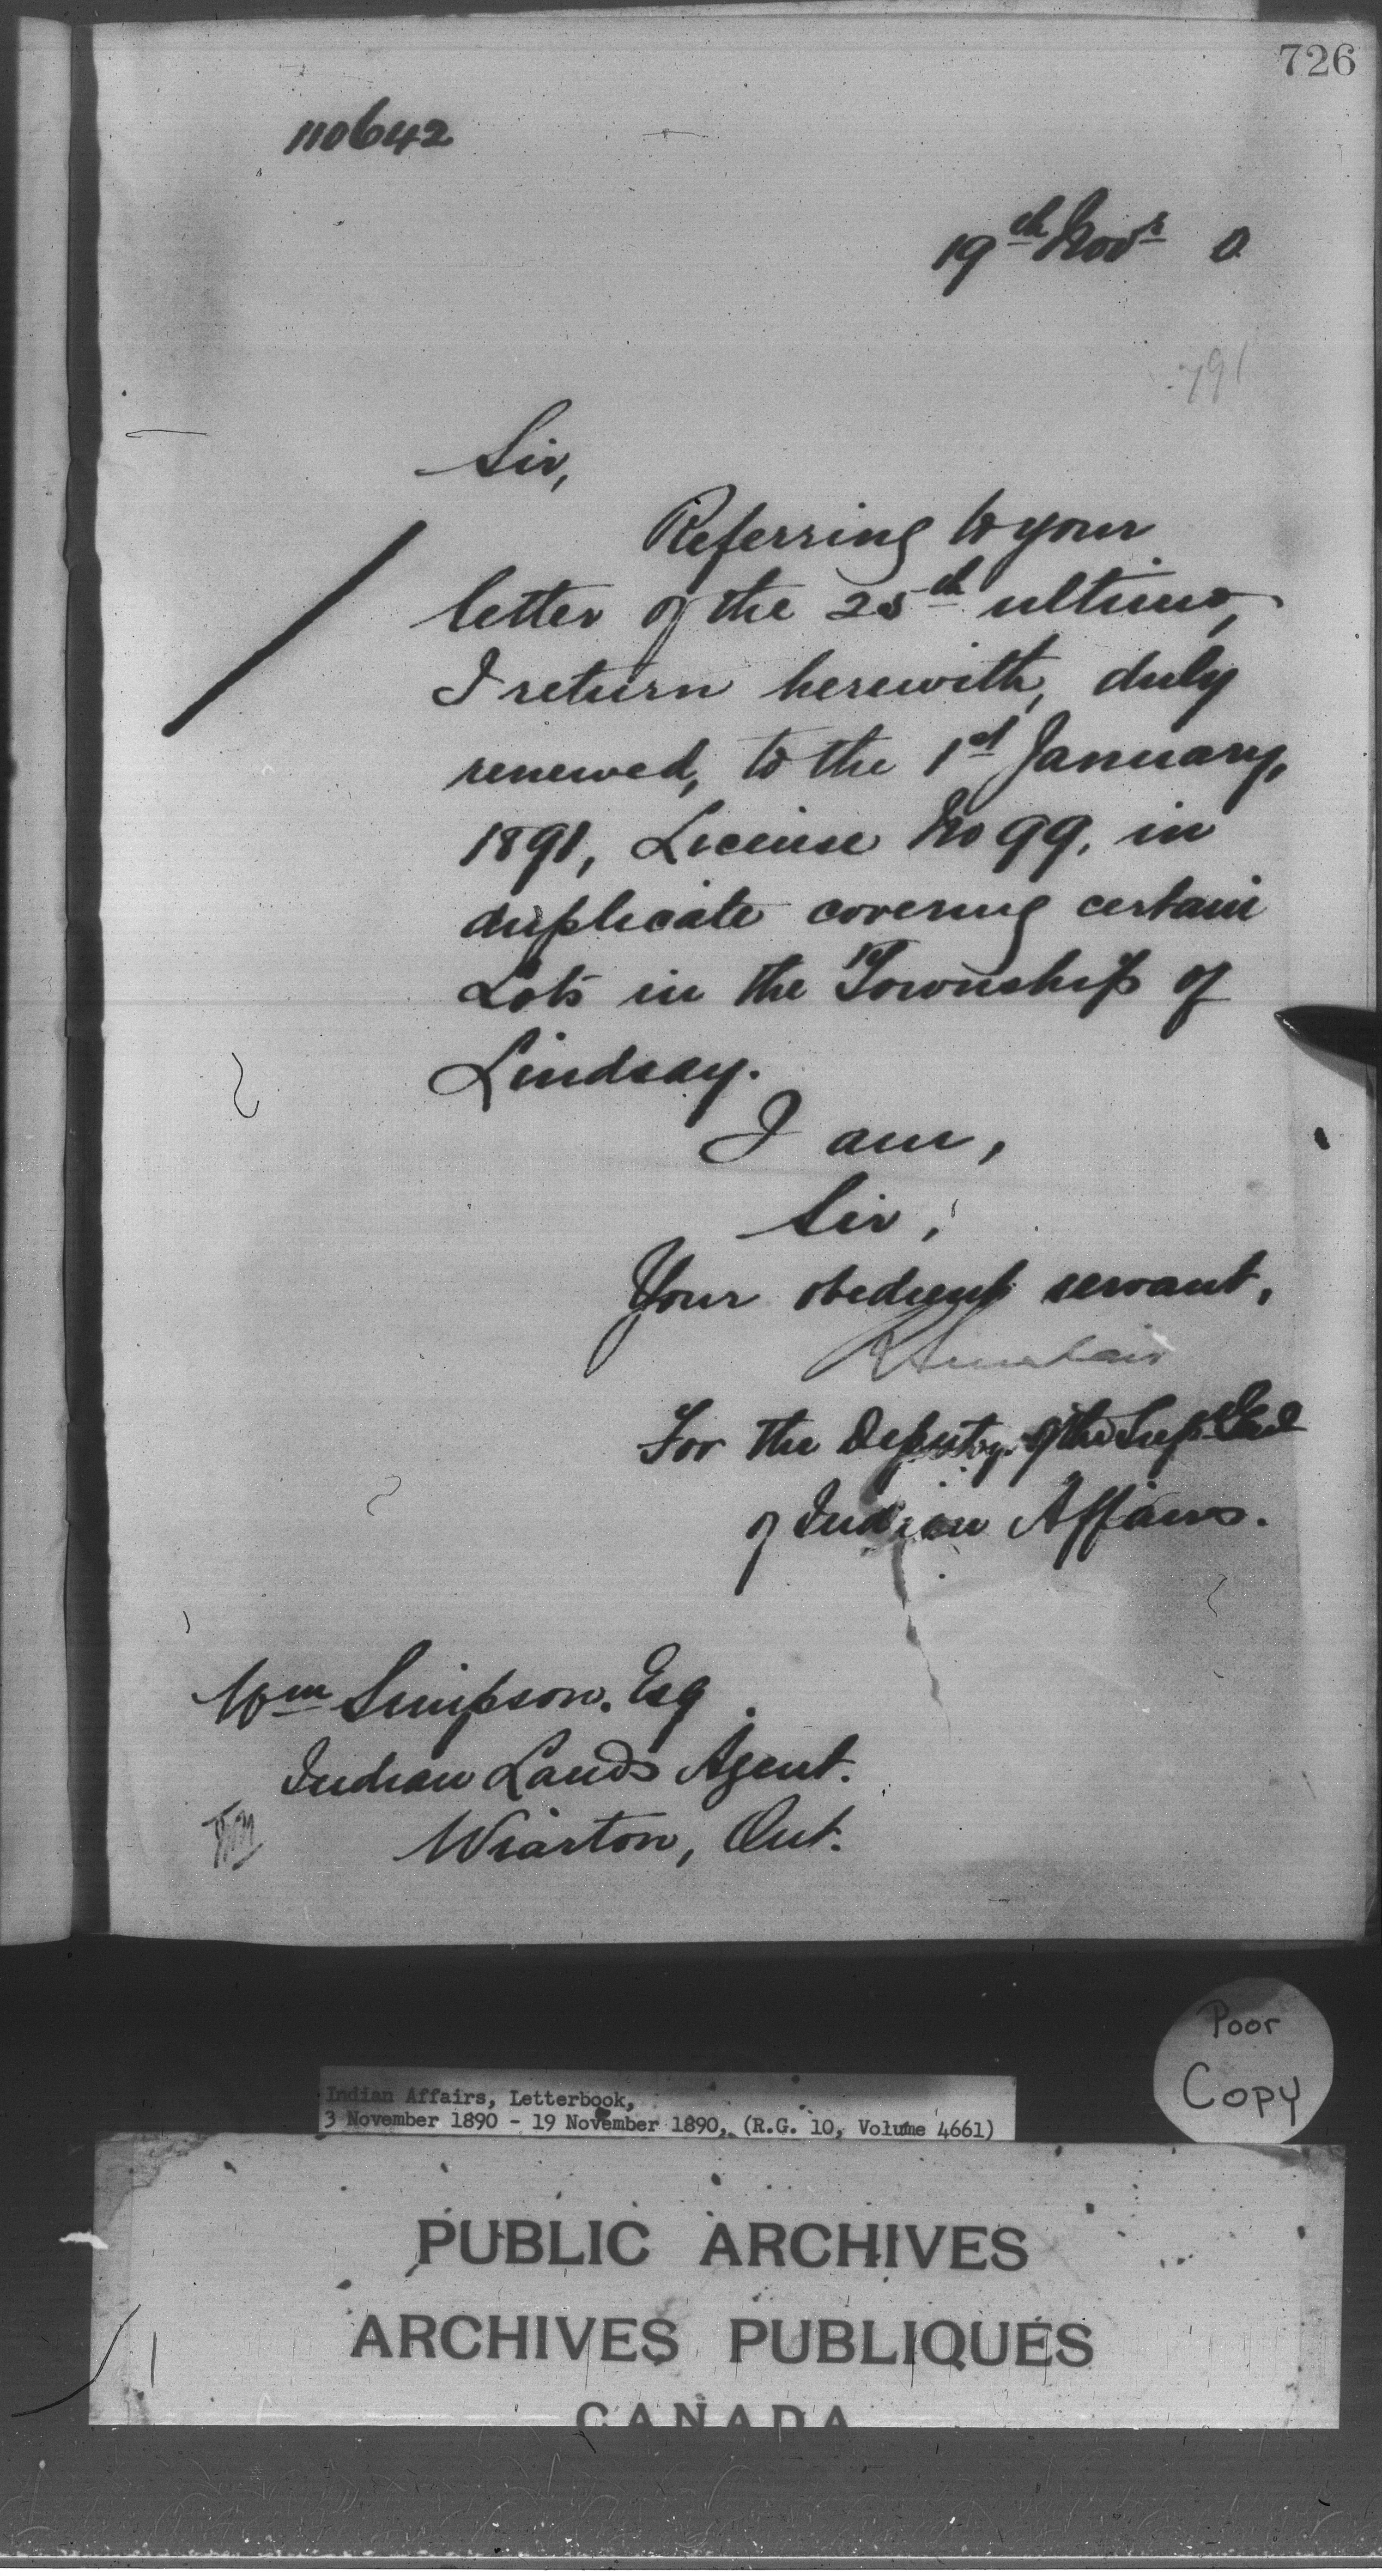 726
110642
19th Novr 0
791
Sir,
Referring to your
letter of the 25th ultimo,
I return herewith, duly
renewed, to the 1st January,
1891, License No 99, in
duplicate covering certain
Lots in the Township of
Lindsay.
I am,
Sir,
Your obedient servant,
R Sinclair
For the Deputy of the Supt Genl
of Indian Affairs.
Wm Simpson. Esq.
Indian Lands Agent.
Wiarton, Ont.
Poor
Copy
Indian Affairs, Letterbook,
3 November 1890 - 19 November 1890, (R.G. 10, Volume 4661)
PUBLIC ARCHIVES
ARCHIVES PUBLIQUES
CANADA